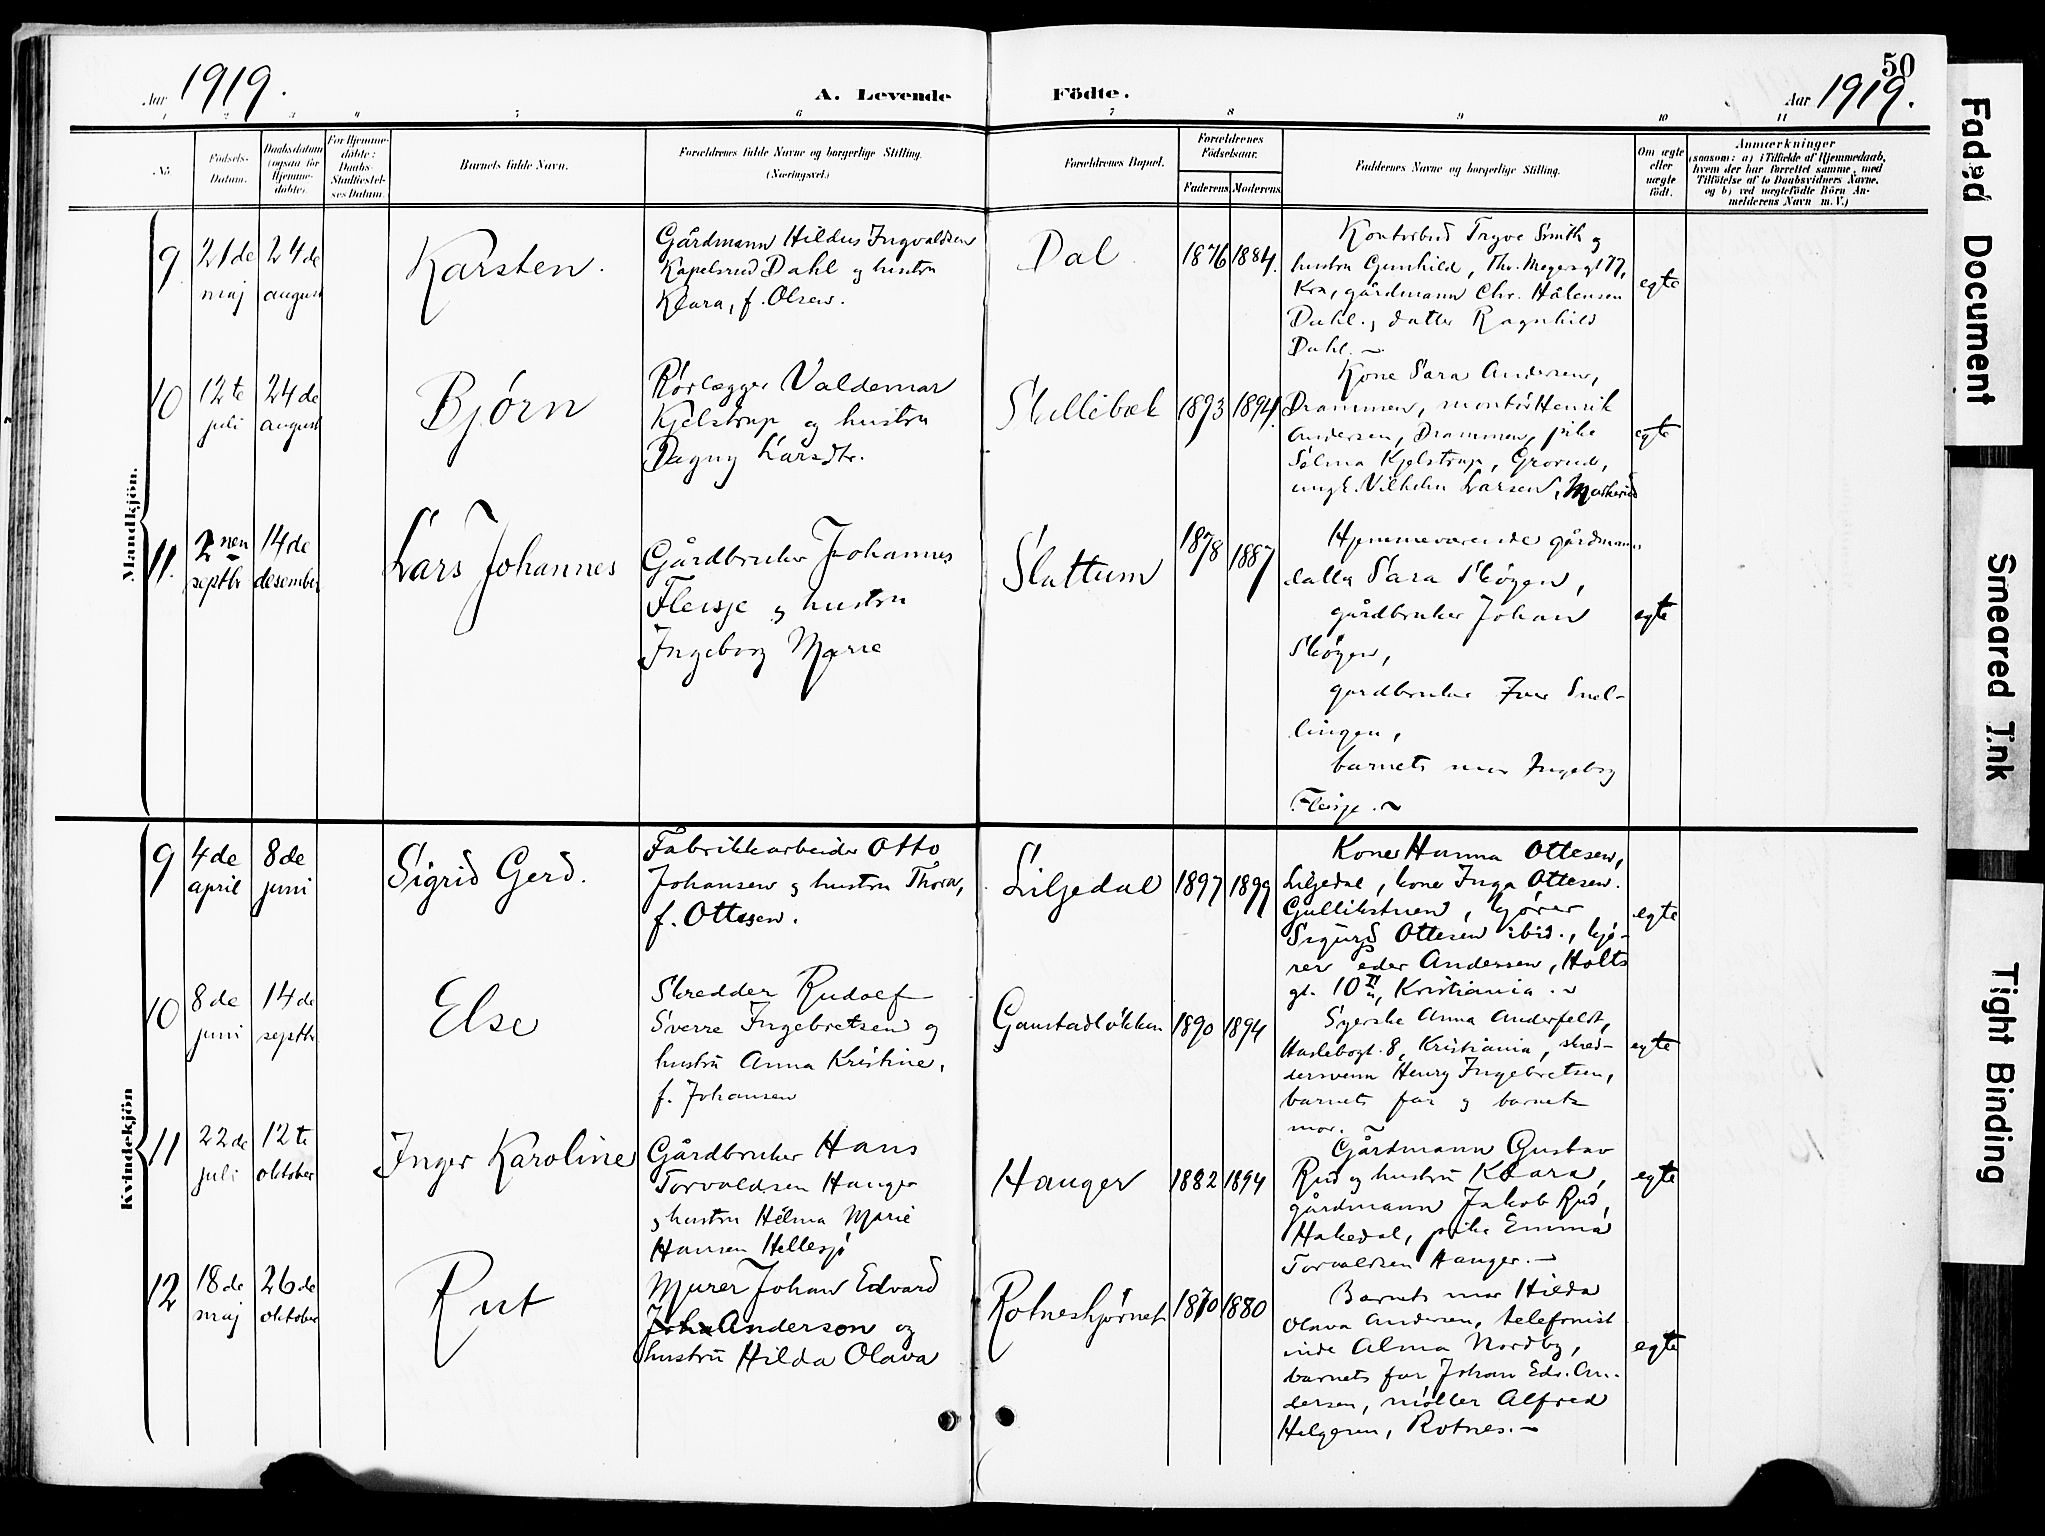 50
Aar 1919.
A. Levende Födte.
Aar 1919.
1 2 3 4 5 6 7 8 9 10 11
No.
Födsels-
Datum.
Daabsdatum
(ogsaa for
Hjemme-
döbte).
For Hjemme-
döbte:
Daabs-
Stadfæstel-
ses Datum.
Barnets fulde Navn.
Forældrenes fulde Navne og borgerlige Stilling.
(Næringsvei.)
Forældrenes Bopæl.
Forældrenes
Födselsaar.
Faderens Moderens
Faddernes Navne og borgerlige Stilling.
Om ægte
eller
uægte
födt.
Anmærkninger
(saasom: a) i Tilfælde af Hjemmedaab,
hvem der har forrettet samme, med
Tilföielse af to Daabsvidners Navne,
og b) ved uægtefödte Börn An-
melderens Navn m. V.)
Mandkjön.
9 21de maj
24de august
Karsten.
Gårdmann Hildus Ingvaldsen
Kapelsrud Dahl og hustru
Klara, f. Olsen.
Dal
1876 1884.
Kontorbud Trygve Smith og
hustru Gunhild, Th. Meyersgt 77,
Kra, gårdmann Chr. Hålensen
Dahl., datter Ragnhild
Dahl.
egte
10 12te juli
24de august
Björn
Rørlægger Valdemar
Kjelstrup og hustru
Dagny Larsdtr.
Skillebæk
1893 1894.
Kone Sara Andersen,
Drammen, montør Henrik
Andersen, Drammen, pike
Selma Kjelstrup, Grorud,
ungk. Vilhelm Larsen,
egte
11. 2nen septbr
14de desember
Lars Johannes
Gårdbruker Johannes
Fleisje og hustru
Ingeborg Marie
Slattum
1878 1887
Hjemmeværende gårdmanns
datter Sara Skøyen,
gårdbruker Johan
Skøyen,
gardbruker Iver Snel-
lingen,
barnets mor Ingeborg
Fleisje.
egte
Kvindekjön
9 4de april
8de juni
Sigrid Gerd.
Fabrikkarbeider Otto
Johansen og hustru Thora,
f. Ottesen.
Liljedal
1897 1899
Kone Hanna Ottesen,
Liljedal, kone Inga Ottesen.
Gullikstuen, kjører
Sigurd Ottesen ibid., kjø-
rer Peder Andersen, Holts
gt. 10 II, Kristiania.
egte
10 8de juni
14de septbr
Else
Skredder Rudolf
Sverre Ingebretsen og
hustru Anna Kristine,
f. Johansen
Gaustadløkken
1890 1894
Syerske Anna Anderfeldt,
Kristiania, skræd-
dersvenn Henry Ingebretsen,
barnets far og barnets
mor.
egte
11 22de juli
12te oktober
Inger Karoline
Gårdbruker Hans
Torvaldsen Hauger
og hustru Hilma Marie
Hansen Hellesjø
Hauger
1882 1894
Gårdmann Gustav
Rud og hustru Klara,
gårdmann Jakob Rud,
Hakedal, pike Emma
Torvaldsen Hauger.
egte
12 18de maj
26de oktober
Rut
Murer Johan Edvard
Anderson og
hustru Hilda Olava
Rotneshjørnet
1870 1880
Barnets mor Hilda
Olava Andersen, telefonist
inde Alma Nordby,
barnets far Johan Edv. An-
dersen, møller Alfred
Helgesen, Rotnes.
egte
Faded Document
Smeared Ink
Tight Binding